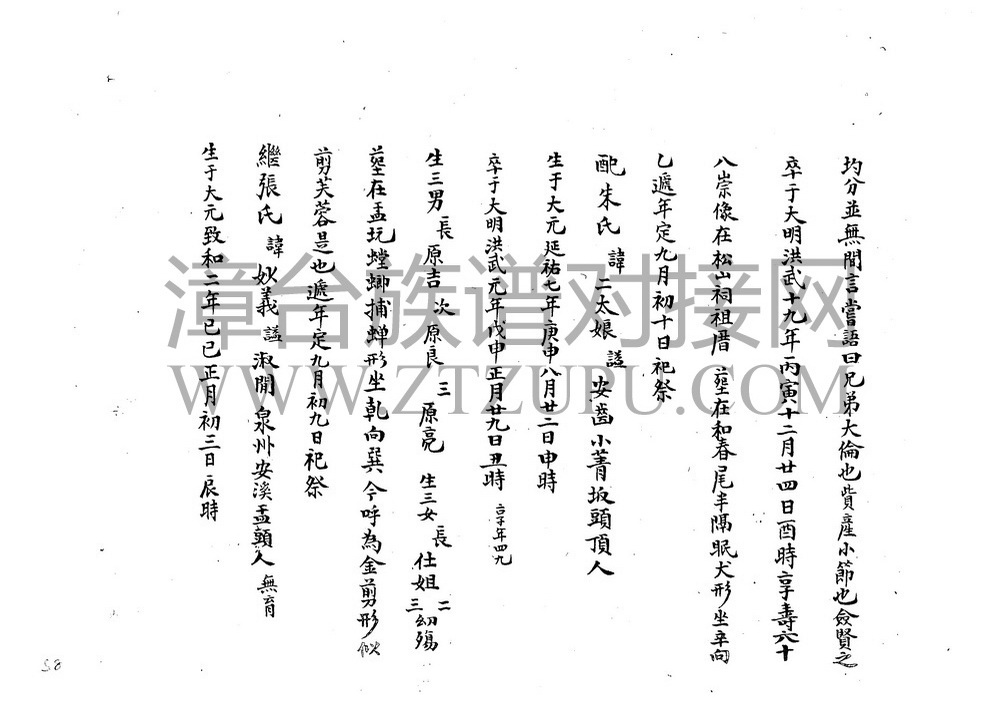 均分並無間言嘗語曰兄弟大倫也貲產小節也僉賢之
卒于大明洪武十九年丙寅十二月廿四日酉時享壽六十
八崇像在松山祠祖厝 塟在和春尾半隔眠犬形坐辛向
乙遞年定九月初十日祀祭
配朱氏 諱二太娘 諡 安啬小菁坂頭頂人
生于大元延祐七年庚申八月廿二日申時
卒于大明洪武元年戊申正月廿九日丑時 享年四九
生三男 長原吉 次原良 三原亮 生三女 長仕姐 二三幼殤
塟在孟坑螳螂捕蝉形坐乾向巽今呼為金剪形似
剪芙蓉是也遞年定九月初九日祀祭
繼張氏 諱妙義 諡淑閒 泉州安溪孟頭人 無育
生于大元致和二年已已正月初三日辰時
58
漳台族谱对接网
WWW.ZTZUPU.COM